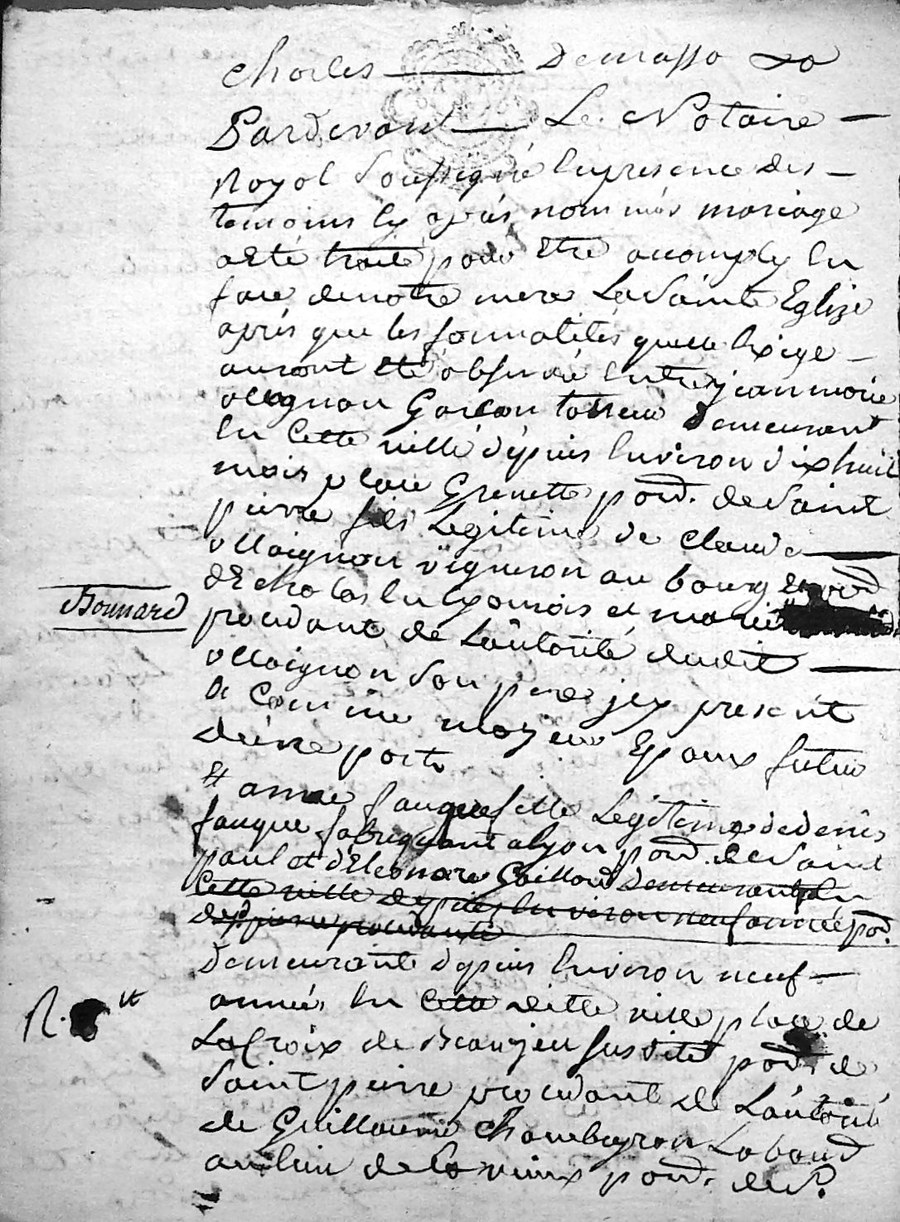 Charles Demasso
Pardevant Le Notaire
Royal Soussigné En presence des
temoins Cy aprés nommés mariage
a Eté traité pour Etre accomply En
face de notre mere La Sainte Eglize
aprés que les formalités quelle Exige
auront Eté observée Entre jean marie
ollagnon Garcon tailleur Demeurant
En Cette ville depuis Environ dixhuit
mois place Grenette paroi. de Saint
pierre fils Legitime de Claude
ollaignon vigneron au bourg
D'Echalas En lyonnois et marie
Bonnard
procedant de L'autorité dudit
ollaignon Son pere jcy present
& Comme majeur Epoux futur
d'une part
Et anne fauque fille Legitime de denis
fauque fabriquant a lyon paroi. de Saint
paul et d'Eleonare Gaillard Demeurante En
Cette ville depuis Environ neuf année paroi.
de St pierre procedante
Demeurante depuis Environ neuf
années En Cette ditte ville place de
La Croix de Beaujeu Susdite paroi. de
Saint pierre procedante de L'autorité
de Guillaume Chambeyron Laboureur
au lieu de paroi. de St.